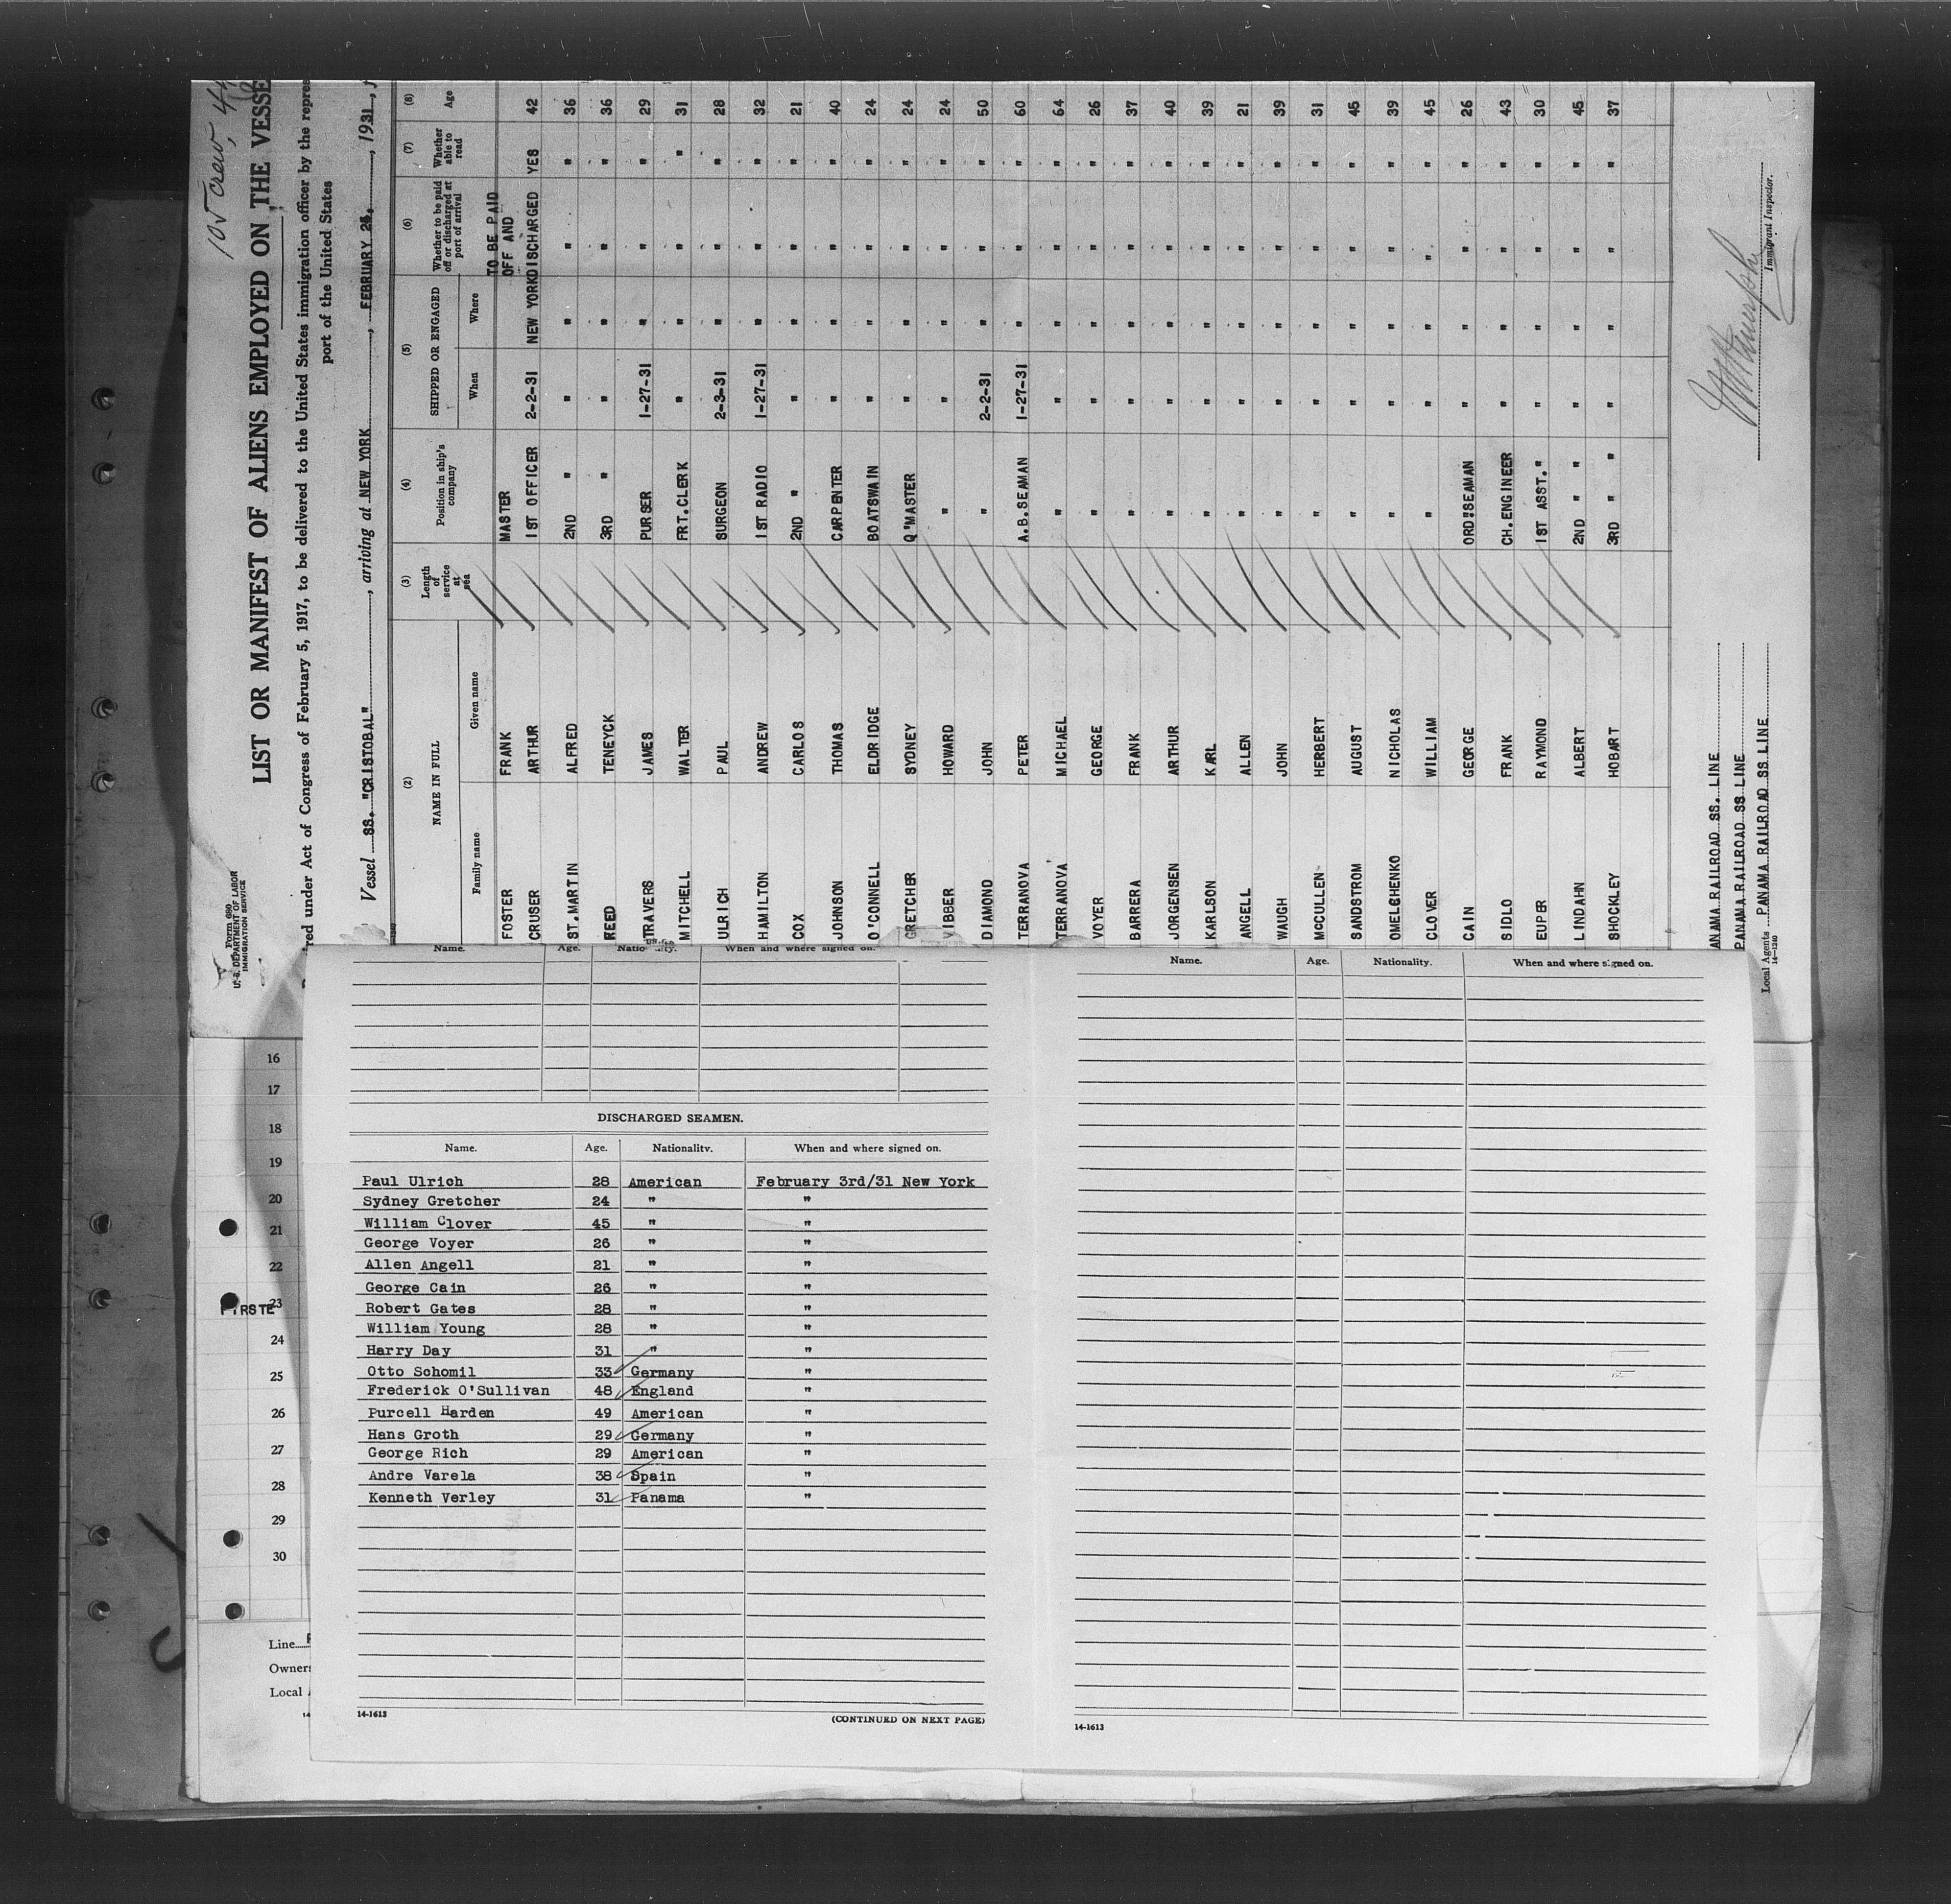 105 crew, 4
LIST OR MANIFEST OF ALIENS EMPLOYED ON THE VESSE
red under Act of Congress of February 5, 1917, to be delivered to the United States immigration officer by the repres
port of the United States
Form 680
U. S. DEPARTMENT OF LABOR
IMMIGRATION SERVICE
Vessel SS. "CRISTOBAL", arriving at NEW YORK, FEBRUARY 25, 1931,
(2) (3) (4) (5) (6) (7) (8)
NAME IN FULL Length of service at sea Position in ship's company SHIPPED OR ENGAGED Whether to be paid off or discharged at port of arrival Whether able to read Age
Family name Given name When Where
TO BE PAID
FOSTER FRANK MASTER OFF AND
CRUSER ARTHUR 1ST OFFICER 2-2-31 NEW YORK DISCHARGED YES 42
ST.MARTIN ALFRED 2ND " " " " " 36
REED TENEYCK 3RD " " " " " 36
TRAVERS JAMES PURSER 1-27-31 " " " 29
MITCHELL WALTER FRT.CLERK " " " " 31
ULRICH PAUL SURGEON 2-3-31 " " " 28
HAMILTON ANDREW 1ST RADIO 1-27-31 " " " 32
COX CARLOS 2ND " " " " " 21
JOHNSON THOMAS CARPENTER " " " " 40
O'CONNELL ELDRIDGE BOATSWAIN " " " " 24
GRETCHER SYDNEY Q'MASTER " " " " 24
VIBBER HOWARD " " " " " 24
DIAMOND JOHN " 2-2-31 " " " 50
TERRANOVA PETER A.B.SEAMAN 1-27-31 " " " 60
TERRANOVA MICHAEL " " " " " 64
VOYER GEORGE " " " " " 26
BARRERA FRANK " " " " " 37
JORGENSEN ARTHUR " " " " " 40
KARLSON KARL " " " " " 39
ANGELL ALLEN " " " " " 21
WAUGH JOHN " " " " " 39
MCCULLEN HERBERT " " " " " 31
SANDSTROM AUGUST " " " " " 45
OMELCHENKO NICHOLAS " " " " " 39
CLOVER WILLIAM " " " " " 45
CAIN GEORGE ORD"SEAMAN " " " " 26
SIDLO FRANK CH.ENGINEER " " " " 43
EUPER RAYMOND 1ST ASST." " " " " 30
LINDAHN ALBERT 2ND " " " " " " 45
SHOCKLEY HOBART 3RD " " " " " " 37
ANAMA RAILROAD SS. LINE
PANAMA RAILROAD SS LINE
Local Agents PANAMA RAILROAD SS LINE
14-1240
Immigrant Inspector.
Name. Age. When and where signed on.
DISCHARGED SEAMEN.
Name. Age. Nationality. When and where signed on.
Paul Ulrich 28 American February 3rd/31 New York
Sydney Gretcher 24 " "
William Clover 45 " "
George Voyer 26 " "
Allen Angell 21 " "
George Cain 26 " "
Robert Gates 28 " "
William Young 28 " "
Harry Day 31 " "
Otto Schomil 33 Germany "
Frederick O'Sullivan 48 England "
Purcell Harden 49 American "
Hans Groth 29 Germany "
George Rich 29 American "
Andre Varela 38 Spain "
Kenneth Verley 31 Panama "
14-1613
(CONTINUED ON NEXT PAGE)
Name. Age. Nationality. When and where signed on.
14-1613
16
17
18
19
20
21
22
23
24
25
26
27
28
29
30
Line
Owners
Local
14